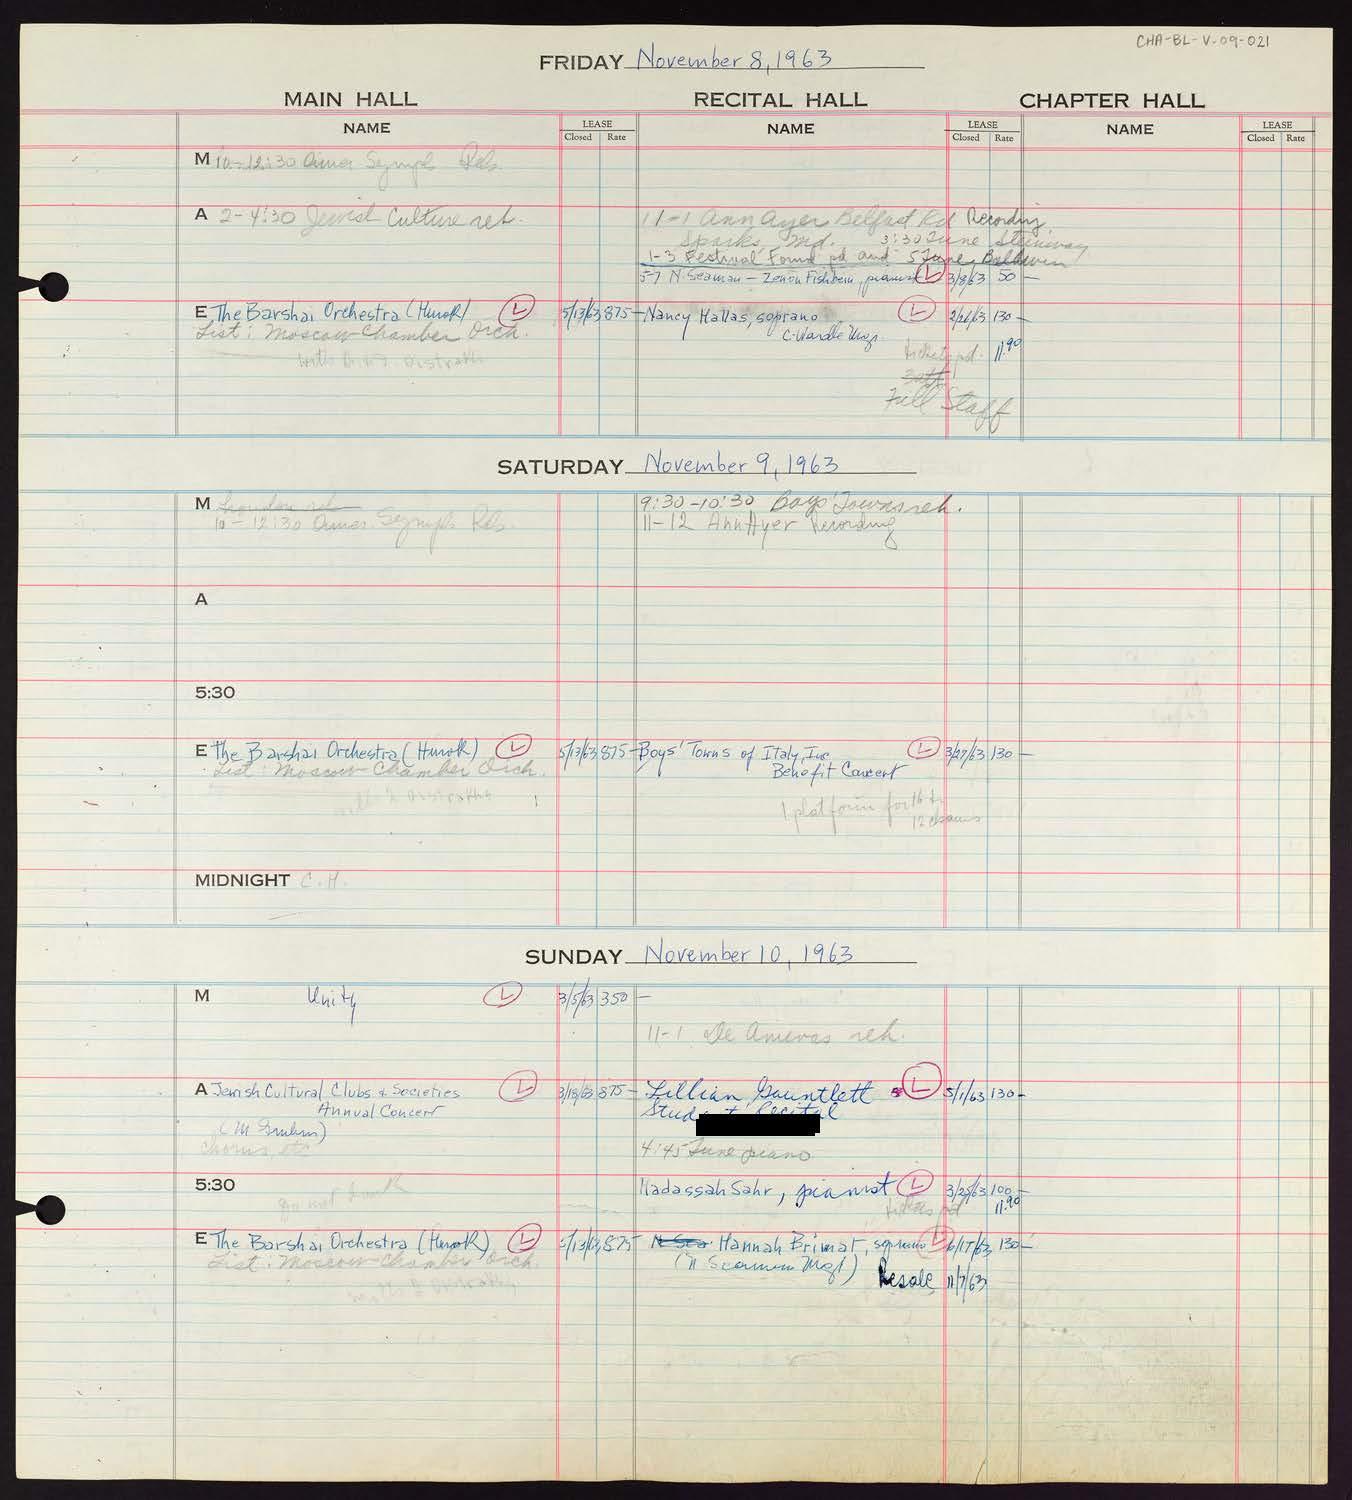 CHA-BL-V-09-021
FRIDAY November 8, 1963
MAIN HALL RECITAL HALL CHAPTER HALL
NAME LEASE NAME LEASE NAME LEASE
Closed Rate Closed Rate Closed Rate
M 10-12:30 Amer Symph Reh.
A 2-4:30 Jewish Culture reh.
11-1 Ann Ayer Belfast Rd Recording
Sparks, Md. 3:30 Tune Steinway
1-3 Festival Found pd and 5 Tune Baldwin
5-7 N. Seaman - Zenon Fishbein, pianist L 3/8/63 50 -
E The Barshai Orchestra (Hurok) L 5/13/63 875- Nancy Hallas, soprano L 2/26/63 130 -
List: Moscow Chamber Orch. C. Wardle Mng.
with
tickets pd. 11.90
Full Staff
SATURDAY November 9, 1963
M 9:30-10:30 Boys' Towns reh.
10-12:30 Amer. Symph Reh. 11-12 Ann Ayer Recording
A
5:30
E The Barshai Orchestra (Hurok) L 5/13/63 875- Boys' Towns of Italy, Inc. L 3/27/63 130 -
List: Moscow Chamber Orch. Benefit Concert
1 platform for 16
12 chairs
MIDNIGHT C.H.
SUNDAY November 10, 1963
M Unity L 3/5/63 350 -
11-1 reh.
A Jewish Cultural Clubs & Societies L 3/18/63 875- Lillian Gauntlett L 5/1/63 130-
Annual Concert Student Recital
chorus, etc 4:45 Tune piano
5:30 Hadassah Sahr, pianist L 3/25/63 100-
tickets pd 11.90
E The Barshai Orchestra (Hurok) L 5/13/63 875- N Sea Hannah Brimat, soprano L 6/17/63 130-
List: Moscow Chamber Orch. (N Seaman Mgt)
Resale 11/7/63